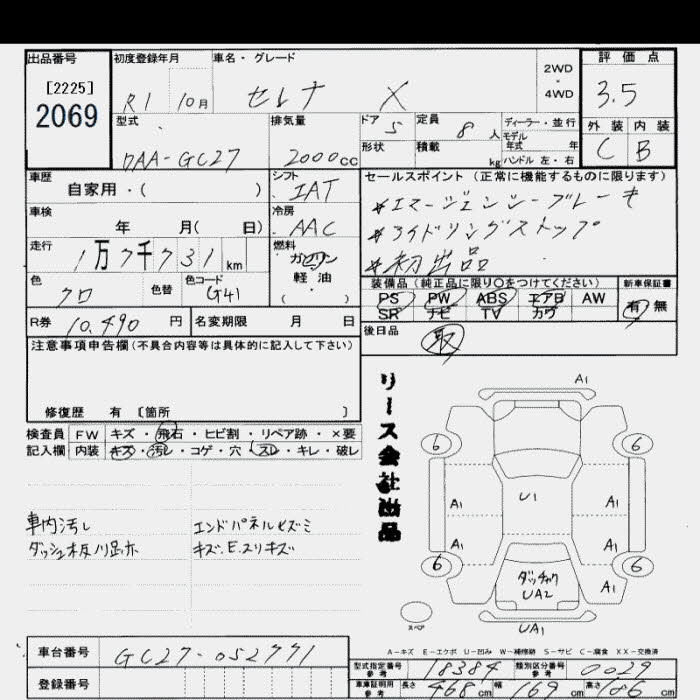 出品番号 初度登録年月 車名・グレード 2WD ・ 4WD 評価点
[2225]
2069
R1 10月 セレナ X 3.5
外装 内装
C B
型式 排気量 ドア 定員 ディーラー・並行
DAA-GC27 2000cc 5 8人 モデル年式 年
形状 積載 kg ハンドル 左・右
車歴 シフト セールスポイント (正常に機能するものに限ります)
自家用・( ) IAT
車検 冷房 *エマージェンシーブレーキ
年 月( 日) AAC *アイドリングストップ
走行 燃料 *初出品
1万7千731km ガソリン
軽・油
( )
色 色替 色コード 装備品 (純正品に限り〇をつけてください) 新車保証書
クロ G41 PS PW ABS エアB AW 有 無
SR ナビ TV カワ
R券 10,490円 名変期限 月 日 後日品
取
注意事項申告欄 (不具合内容等は具体的に記入して下さい)
修復歴 有 [箇所 ]
リース会社出品
検査員記入欄 FW キズ・飛石・ヒビ割・リペア跡・×要
内装 キズ・汚レ・コゲ・穴・スレ・キレ・破レ
車内汚レ エンドパネルヒズミ
キズ.E.スリキズ
A1
6 6
U1
A1 A1
A1 A1
6 6
ダッチャク
UA2
A1
スペア UA1
A-キズ E-エクボ U-凹み W-補修跡 S-サビ C-腐食 XX-交換済
車台番号 GC27-052771
型式指定番号 参考 18384 類別区分番号 参考 0029
登録番号
車庫証明用 参考 長さ 468cm 幅 169cm 高さ 186cm